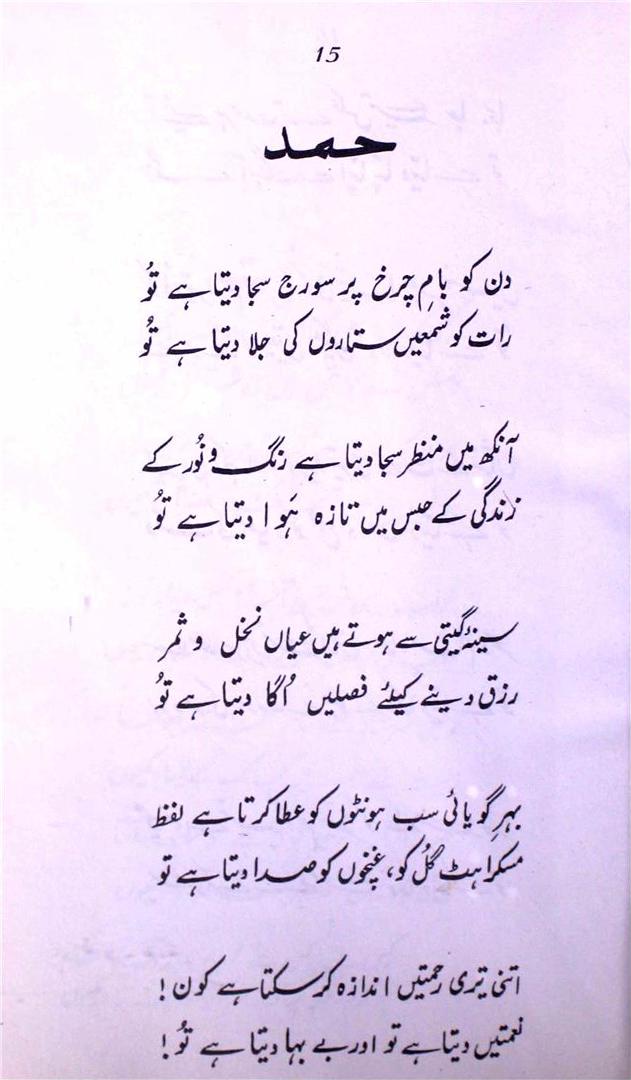 15
حمد
دن کو بامِ چرخ پر سورج سجا دیتا ہے توُ
رات کو شمعیں ستاروں کی جلا دیتا ہے توُ
آنکھ میں منظر سجا دیتا ہے رنگ و نوُر کے
زندگی کے حبس میں تازہ ہَوا دیتا ہے توُ
سینۂ گیتی سے ہوتے ہیں عیاں نخل و ثمر
رزق دینے کیلئے فصلیں اُگا دیتا ہے توُ
بہرِ گویائی سب ہونٹوں کو عطا کرتا ہے لفظ
مسکراہٹ گلُ کو، غنچوں کو صدا دیتا ہے تو
اتنی تیری رحمتیں اندازہ کر سکتا ہے کون!
نعمتیں دیتا ہے تو اور بے بہا دیتا ہے توُ!